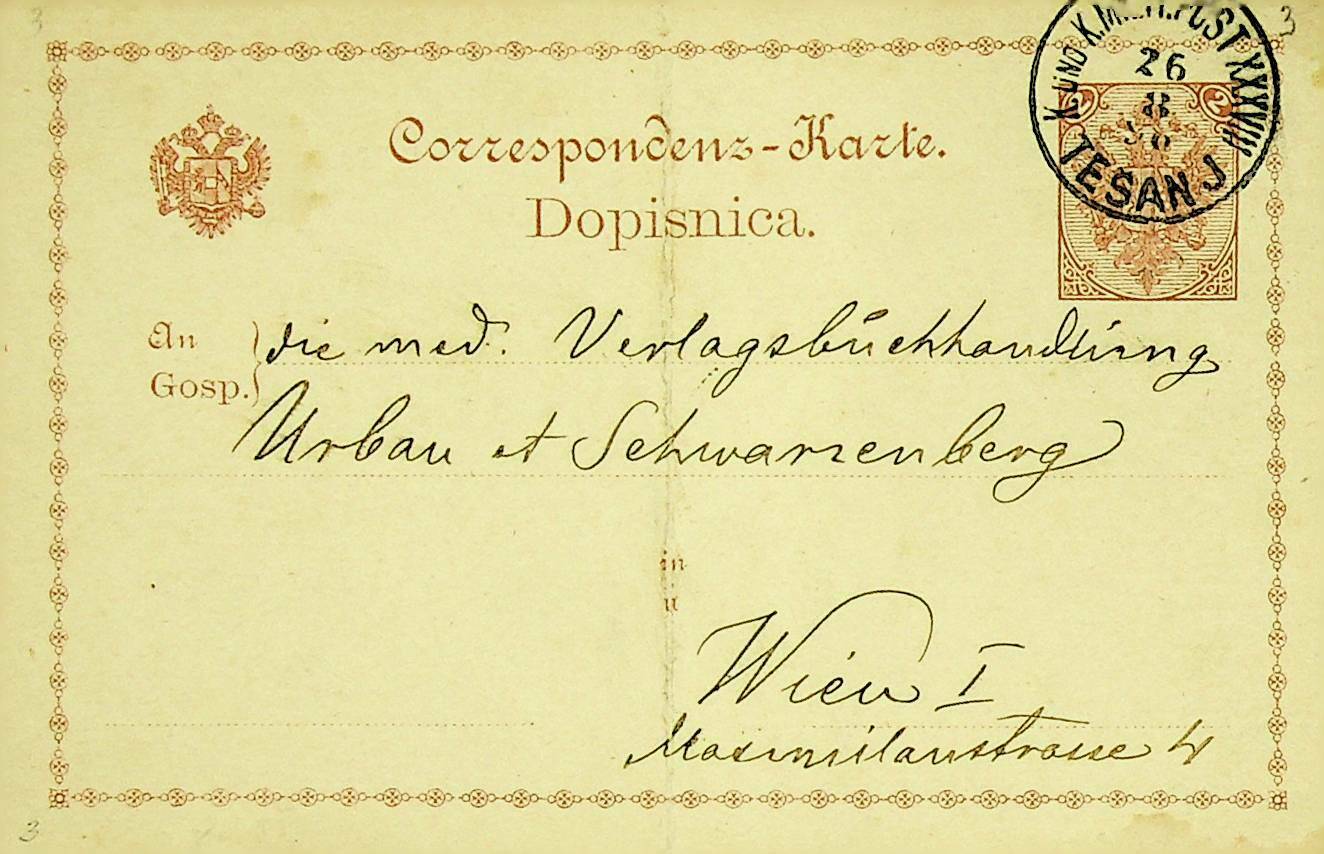 3
3
K. UND K. MILIT. POST XXXVIII
26
8
TEŠANJ
2 2
Correspondenz-Karte.
Dopisnica.
An
Gosp.
die med. Verlagsbuchhandlung
Urban et Schwarzenberg
in
u
Wien I
Maximilanstrasse 4
3